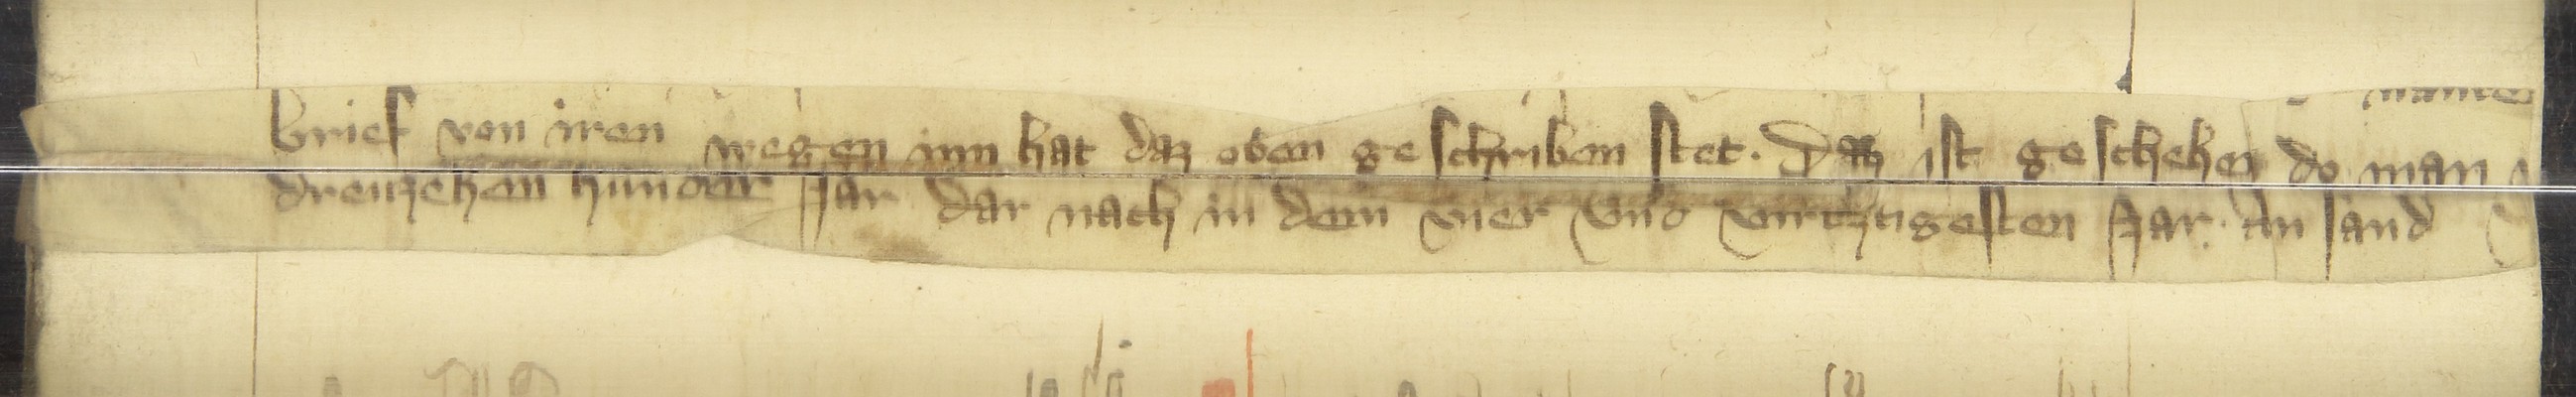 brief von iren wegen inn hat daz oben ge schriben stet. Daz ist ge schehen do man
dreuzehen hunder Jar dar nach in dem vier und virtzigesten Jar. an sand